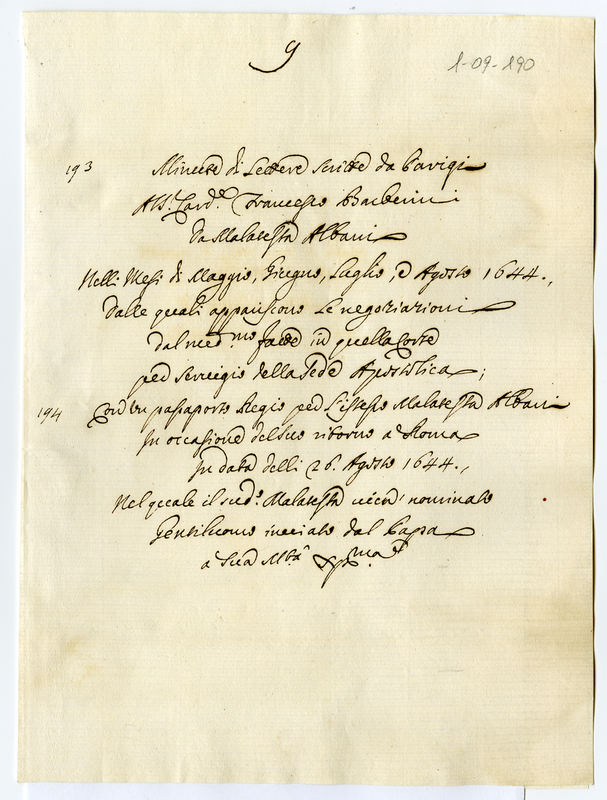 9
1-09-190
193 Minute di Lettere scritte da Parigi
All Sr. Card.le Francesco Barberini
da Malatesta Albani
Nelli Mesi di Maggio, Giugno, Luglio, e Agosto 1644.,
dalle quali appariscono le negotiazioni
dal med.mo fatte in quella Corte
per servigio della Sede Apostolica;
194 Con un passaporto Regio per l'istesso Malatesta Albani
In occasione del suo ritorno a Roma
In data delli 26. Agosto 1644.,
Nel quale il sud.o Malatesta vien' nominato
Gentiluomo inviato dal Papa
a Sua M.tà X.ma